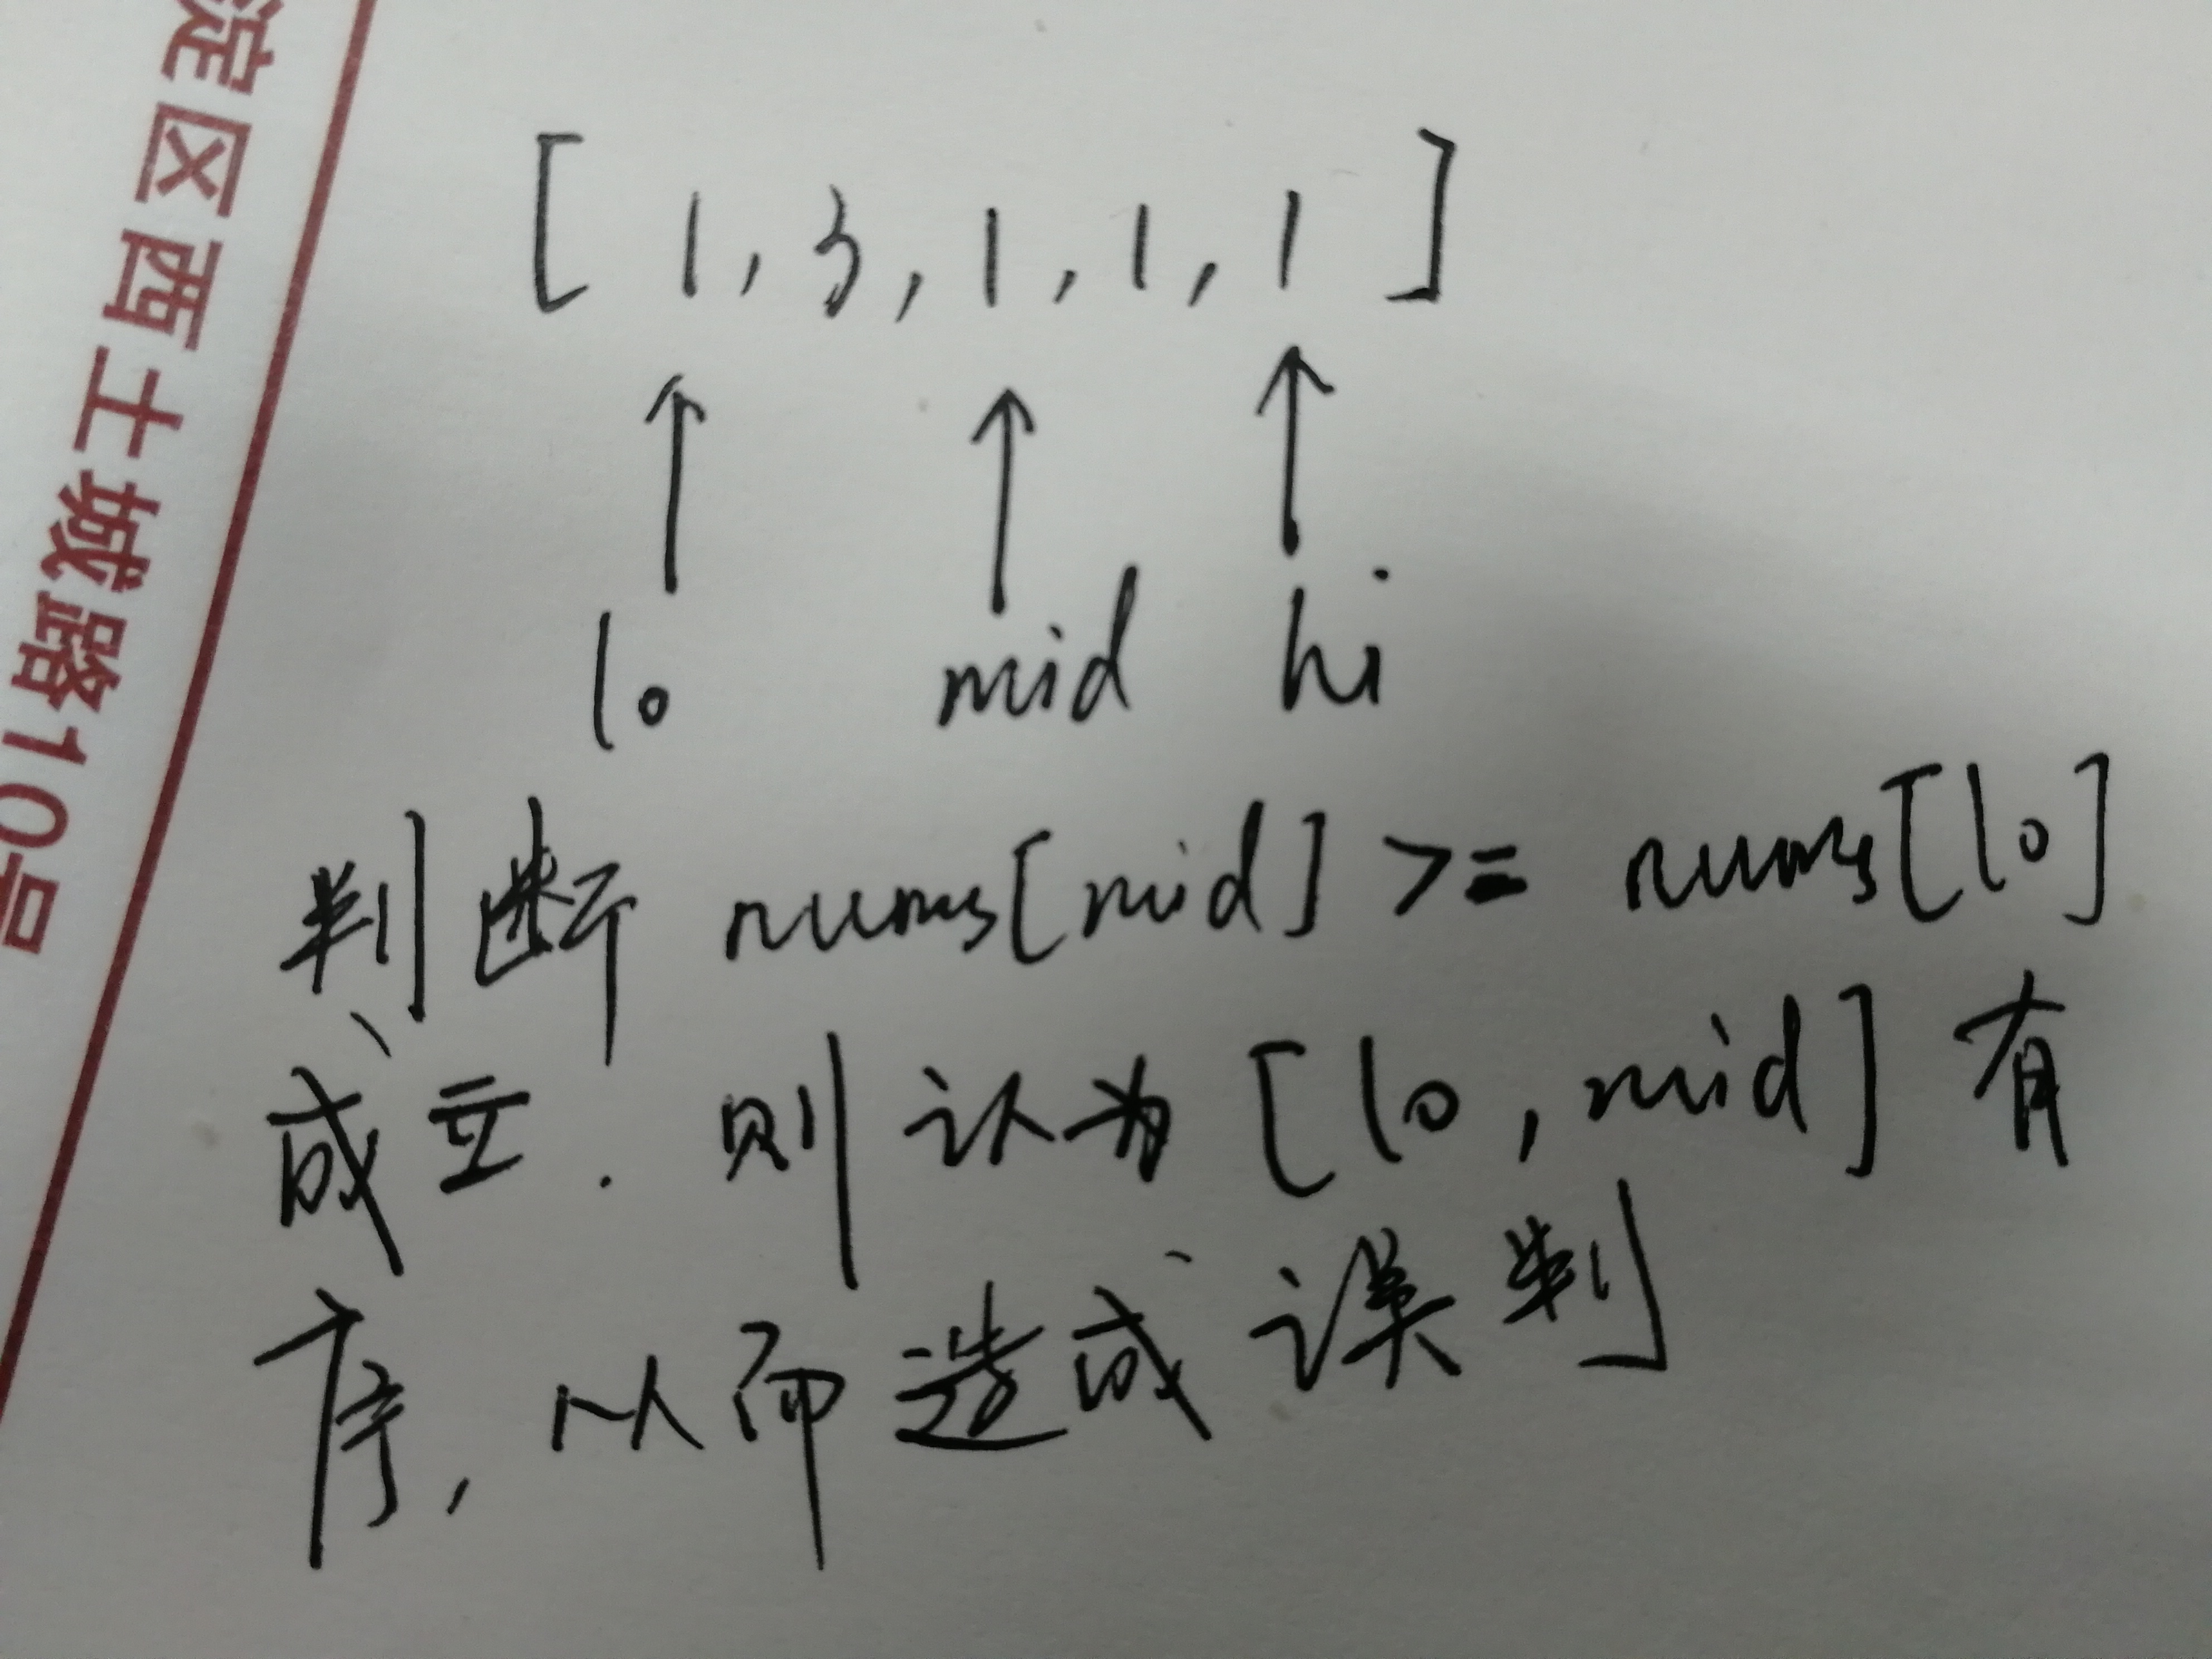 淀区西土城路10号
[1,3,1,1,1]
lo mid hi
判断 nums[mid] >= nums[lo]
成立. 则认为[lo,mid]有
序,从而造成误判